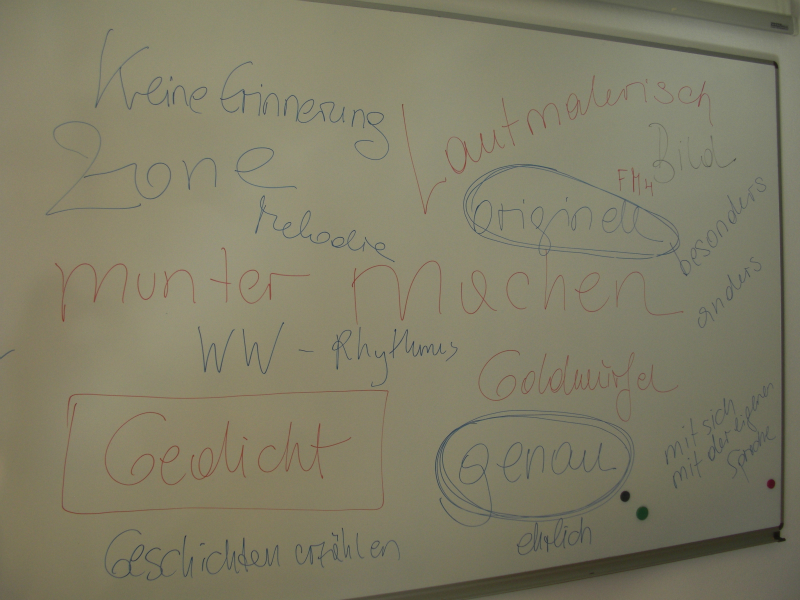 Keine Erinnerung
Lautmalerisch
Zone
FM4
Bild
originell
Melodie
besonders
anders
munter machen
WW - Rhythmus
Goldwürfel
Gedicht
genau
mit sich
mit der eigenen
Sprache
Geschichten erzählen
ehrlich